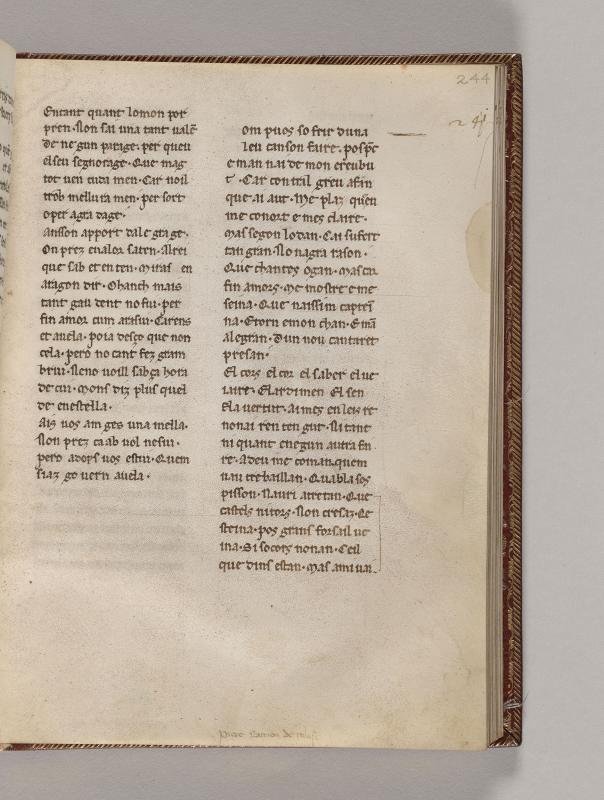 244
Entant quant lomon por
pren. Non sai una tant valẽ
De negun parage. per queu
el seu segnorage. Que mag
tot ven cuda men. Car uoil
trob mellura men. per fort
oper agradage.
ansson apport dale grage.
On prez eualor saten. Al rei
que sab et en ten. Miras en
aragon dir. Ohanch mais
tant gau dent no fui. per
fin amor cum
et auela. poia desço que non
cela. pero no cant fez gram
brui. Neno uoill sabça hora
de cui. Mons diz plus quel
de enestella.
Ais uos am ges una mella.
Non prez ca ab uol nesui.
pero adors uos estui. Quem
siaz go uern auela.
om puos sofrir duna
leu canson faire. pos
e man nai de mon
Car contril greu afin
que ai aut. Me plaz quen
me conort e mes claire.
Mas segon lo dan. Cai sufert
tan gran. No nagra rason.
Que chantes ogan. Mas car
fin amors. Me mostre e me
seina. Que naissim capteī
na. Etorn emon chan. E mā
alegran. Dun nou cantaret
presan.
El cors el cor el saber el ue
iaire. El ardimen El sen
El a vertut. Aimes en leis re
nonai ren ten gut. Ni tant
ni quant enegun autra fn
re. Adeu me coman. quem
uau trebaillan. Quablasos
pisson. Nauri atretan. Que
castels nitors. Non cresaz. Re
steina. pos grans forsail ue
ina. Si socors nonan. Ceil
que dins estan. Mas ami uai